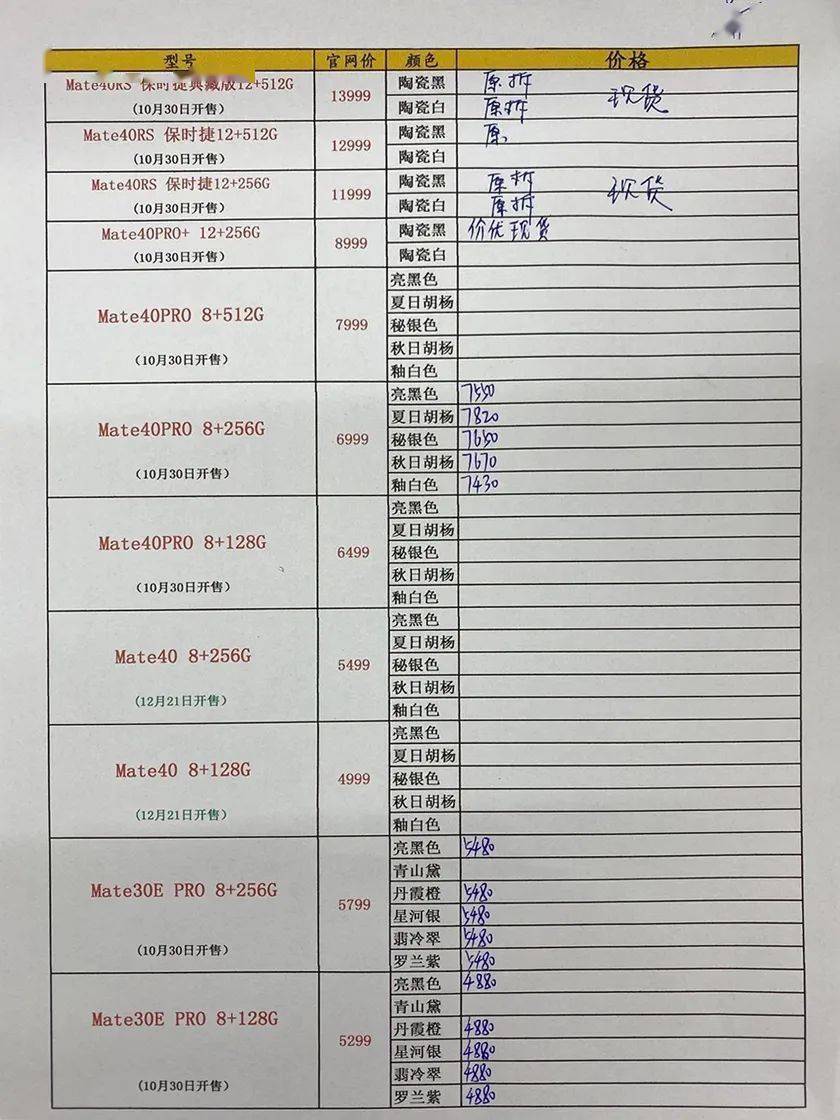 型号 官网价 颜色 价格
Mate40RS 保时捷典藏版12+512G 13999 陶瓷黑 原拆 现货
(10月30日开售) 陶瓷白 原拆
Mate40RS 保时捷12+512G 12999 陶瓷黑 原
(10月30日开售) 陶瓷白
Mate40RS 保时捷12+256G 11999 陶瓷黑 原拆 现货
(10月30日开售) 陶瓷白 原拆
Mate40PRO+ 12+256G 8999 陶瓷黑 价优现货
(10月30日开售) 陶瓷白
Mate40PRO 8+512G 7999 亮黑色
夏日胡杨
秘银色
(10月30日开售) 秋日胡杨
釉白色
Mate40PRO 8+256G 6999 亮黑色 7550
夏日胡杨 7820
秘银色 7650
(10月30日开售) 秋日胡杨 7670
釉白色 7430
Mate40PRO 8+128G 6499 亮黑色
夏日胡杨
秘银色
(10月30日开售) 秋日胡杨
釉白色
Mate40 8+256G 5499 亮黑色
夏日胡杨
秘银色
(12月21日开售) 秋日胡杨
釉白色
Mate40 8+128G 4999 亮黑色
夏日胡杨
秘银色
(12月21日开售) 秋日胡杨
釉白色
Mate30E PRO 8+256G 5799 亮黑色 5480
青山黛
丹霞橙 5480
星河银 5480
(10月30日开售) 翡冷翠 5480
罗兰紫 5480
Mate30E PRO 8+128G 5299 亮黑色 4880
青山黛
丹霞橙 4880
星河银 4880
(10月30日开售) 翡冷翠 4880
罗兰紫 4880